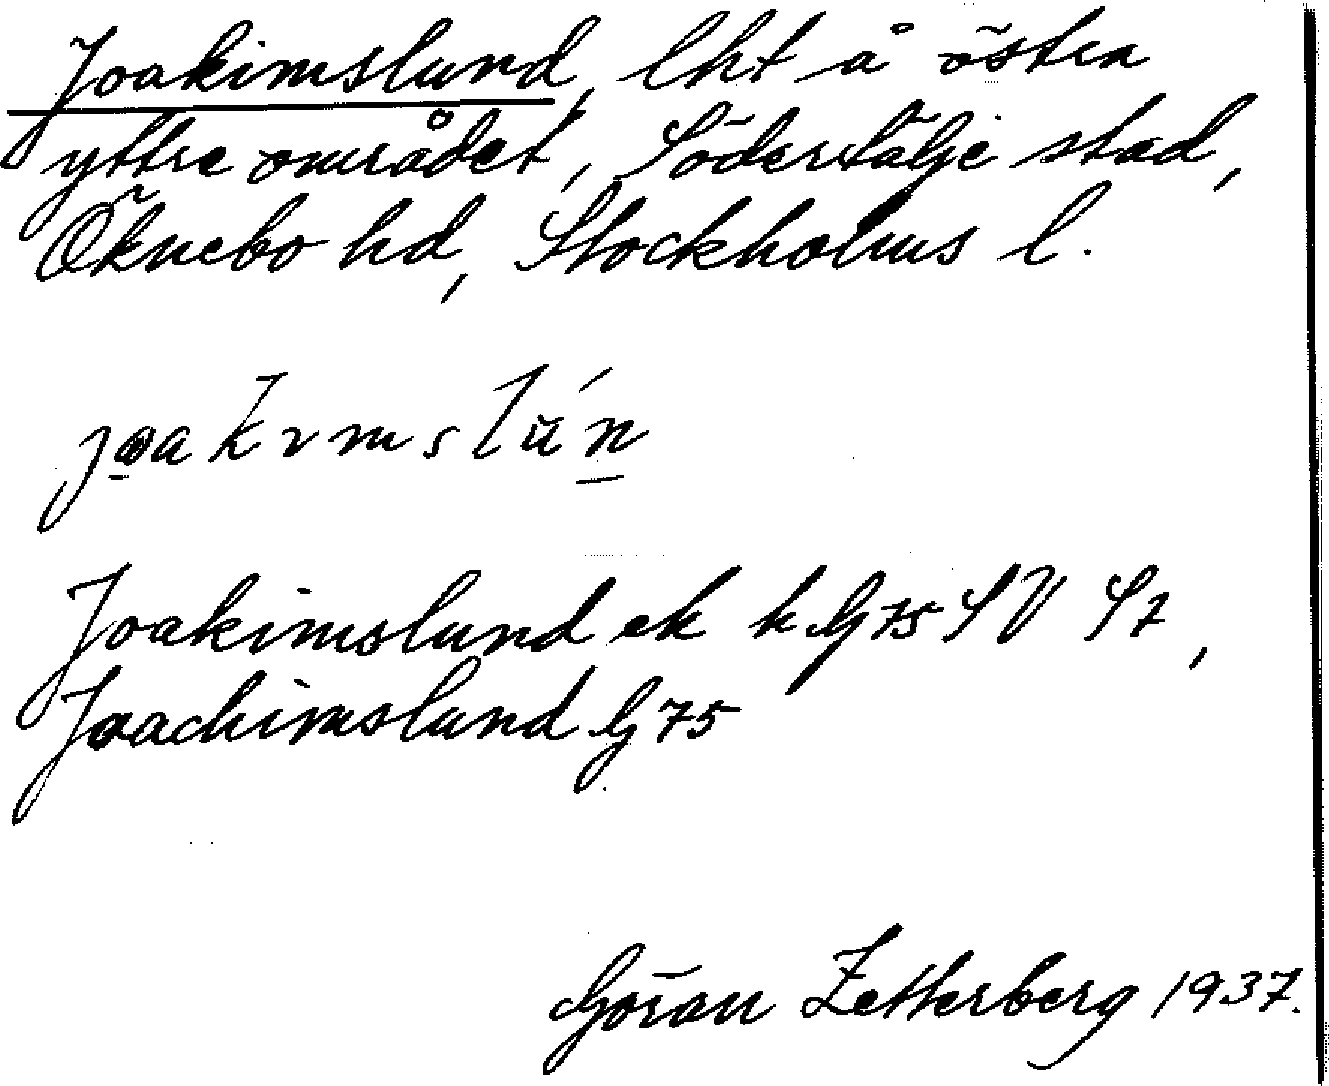 Joakimslund, lht å östra
yttre området, Södertälje stad,
Öknebo hd, Stockholms l.
Joakimslund ek k. G 75 SV S7,
Joachimslund G 75
Göran Zetterberg 1937.